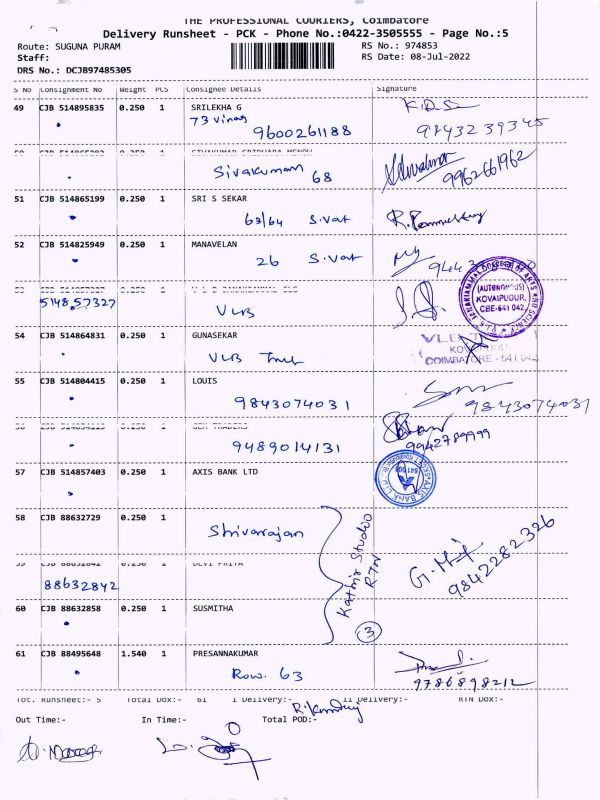 THE PROFESSIONAL COURIERS, Coimbatore
Delivery Runsheet - PCK - Phone No.:0422-3505555 - Page No.:5
Route: SUGUNA PURAM RS No.: 974853
Staff: RS Date: 08-Jul-2022
DRS No.: DCJB97485305
S No Consignment No Weight PCS Consignee Details Signature
49 CJB 514895835 0.250 1 SRILEKHA G
73 Vinay
9600261188 9843239345
Sivakumar 68 9962661962
51 CJB 514865199 0.250 1 SRI S SEKAR
63/64 S.Vat
52 CJB 514825949 0.250 1 MANAVELAN
26 S.Vat
514857327 VLB
(AUTONOMOUS)
KOVAIPUDUR,
CBE-641 042
54 CJB 514864831 0.250 1 GUNASEKAR
VLB
COIMBATORE - 641 042
55 CJB 514804415 0.250 1 LOUIS
9843074031 9843074031
9489014131 9942789999
57 CJB 514857403 0.250 1 AXIS BANK LTD
AXIS BANK LTD
58 CJB 88632729 0.250 1
Shivarajan
Kathir Studio
RTN
G.
9842282326
DEVI PRIYA
88632842
60 CJB 88632858 0.250 1 SUSMITHA
3
61 CJB 88495648 1.540 1 PRESANNAKUMAR
Row. 63
9786898212
Tot. Runsheet:- 5 Total Dox:- 61 Delivery:- Delivery:- RTN Dox:-
Out Time:- In Time:- Total POD:-